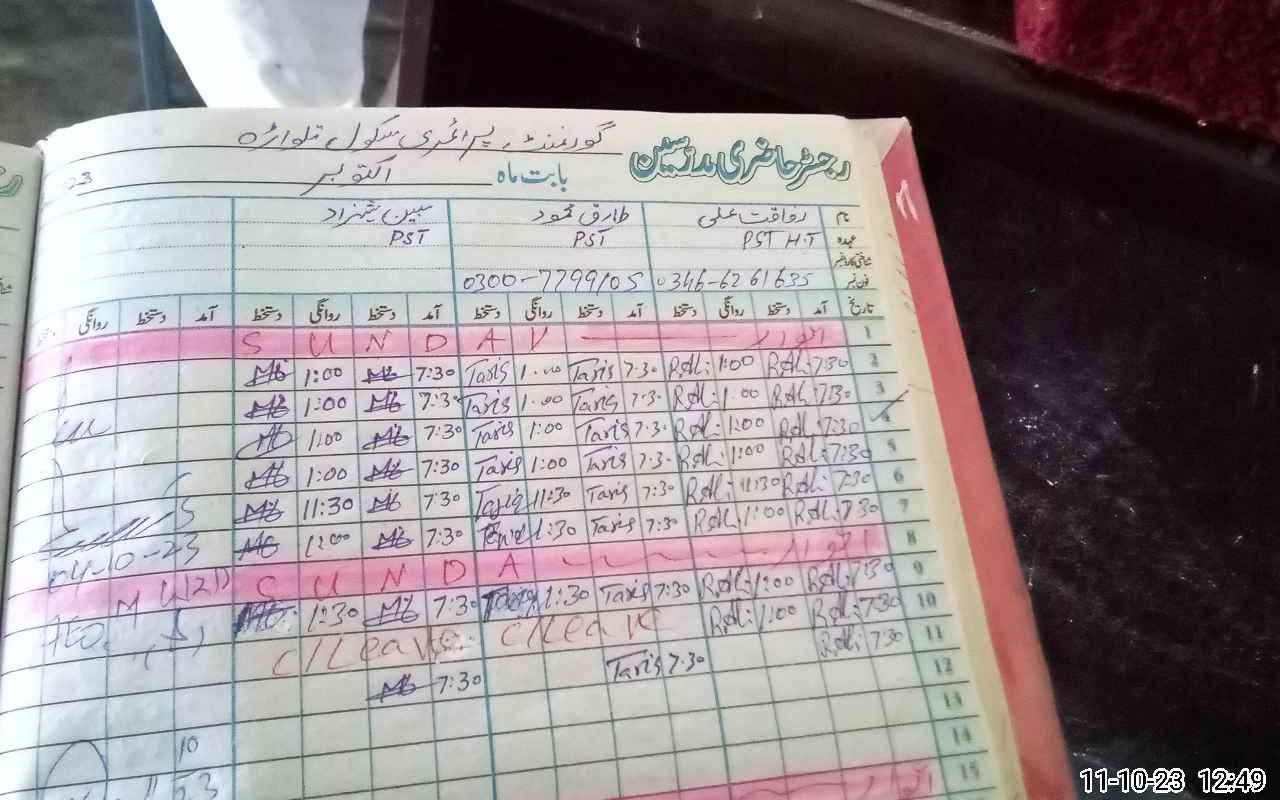 گورنمنٹ پرائمری سکول تلواڑہ
رجسٹر حاضری مدرسین
بابت ماہ اکتوبر 23
نام رفاقت علی طارق محمود سبین شہزاد
عہدہ PST H.T PST PST
فون نمبر 0346-6261635 0300-7799105
تاریخ آمد دستخط روانگی دستخط آمد دستخط روانگی دستخط آمد دستخط روانگی دستخط آمد دستخط روانگی
1 اتوار S U N D A Y
2 R.Al: 7:30 R.Al: 1:00 Taris 7:30 Taris 1:00 7:30 1:00
3 R.Al: 7:30 R.Al: 1:00 Taris 7:30 Taris 1:00 7:30 1:00
4 R.Al: 7:30 R.Al: 1:00 Taris 7:30 Taris 1:00 7:30 1:00
5 R.Al: 7:30 R.Al: 1:00 Taris 7:30 Taris 1:00 7:30 1:00
6 R.Al: 7:30 R.Al: 11:30 Taris 7:30 Tariq 11:30 7:30 11:30
7 R.Al: 7:30 R.Al: 1:00 Taris 7:30 1:30 7:30 1:00
04-10-23
8 اتوار S U N D A
9 R.Al: 7:30 R.Al: 1:00 Taris 7:30 1:30 7:30 1:30
AEO
10 R.Al: 7:30 R.Al: 1:00 C/Leave C/Leave
11 R.Al: 7:30 Taris 7:30 7:30
12
13
14
10
15 اتوار
23
11-10-23 12:49